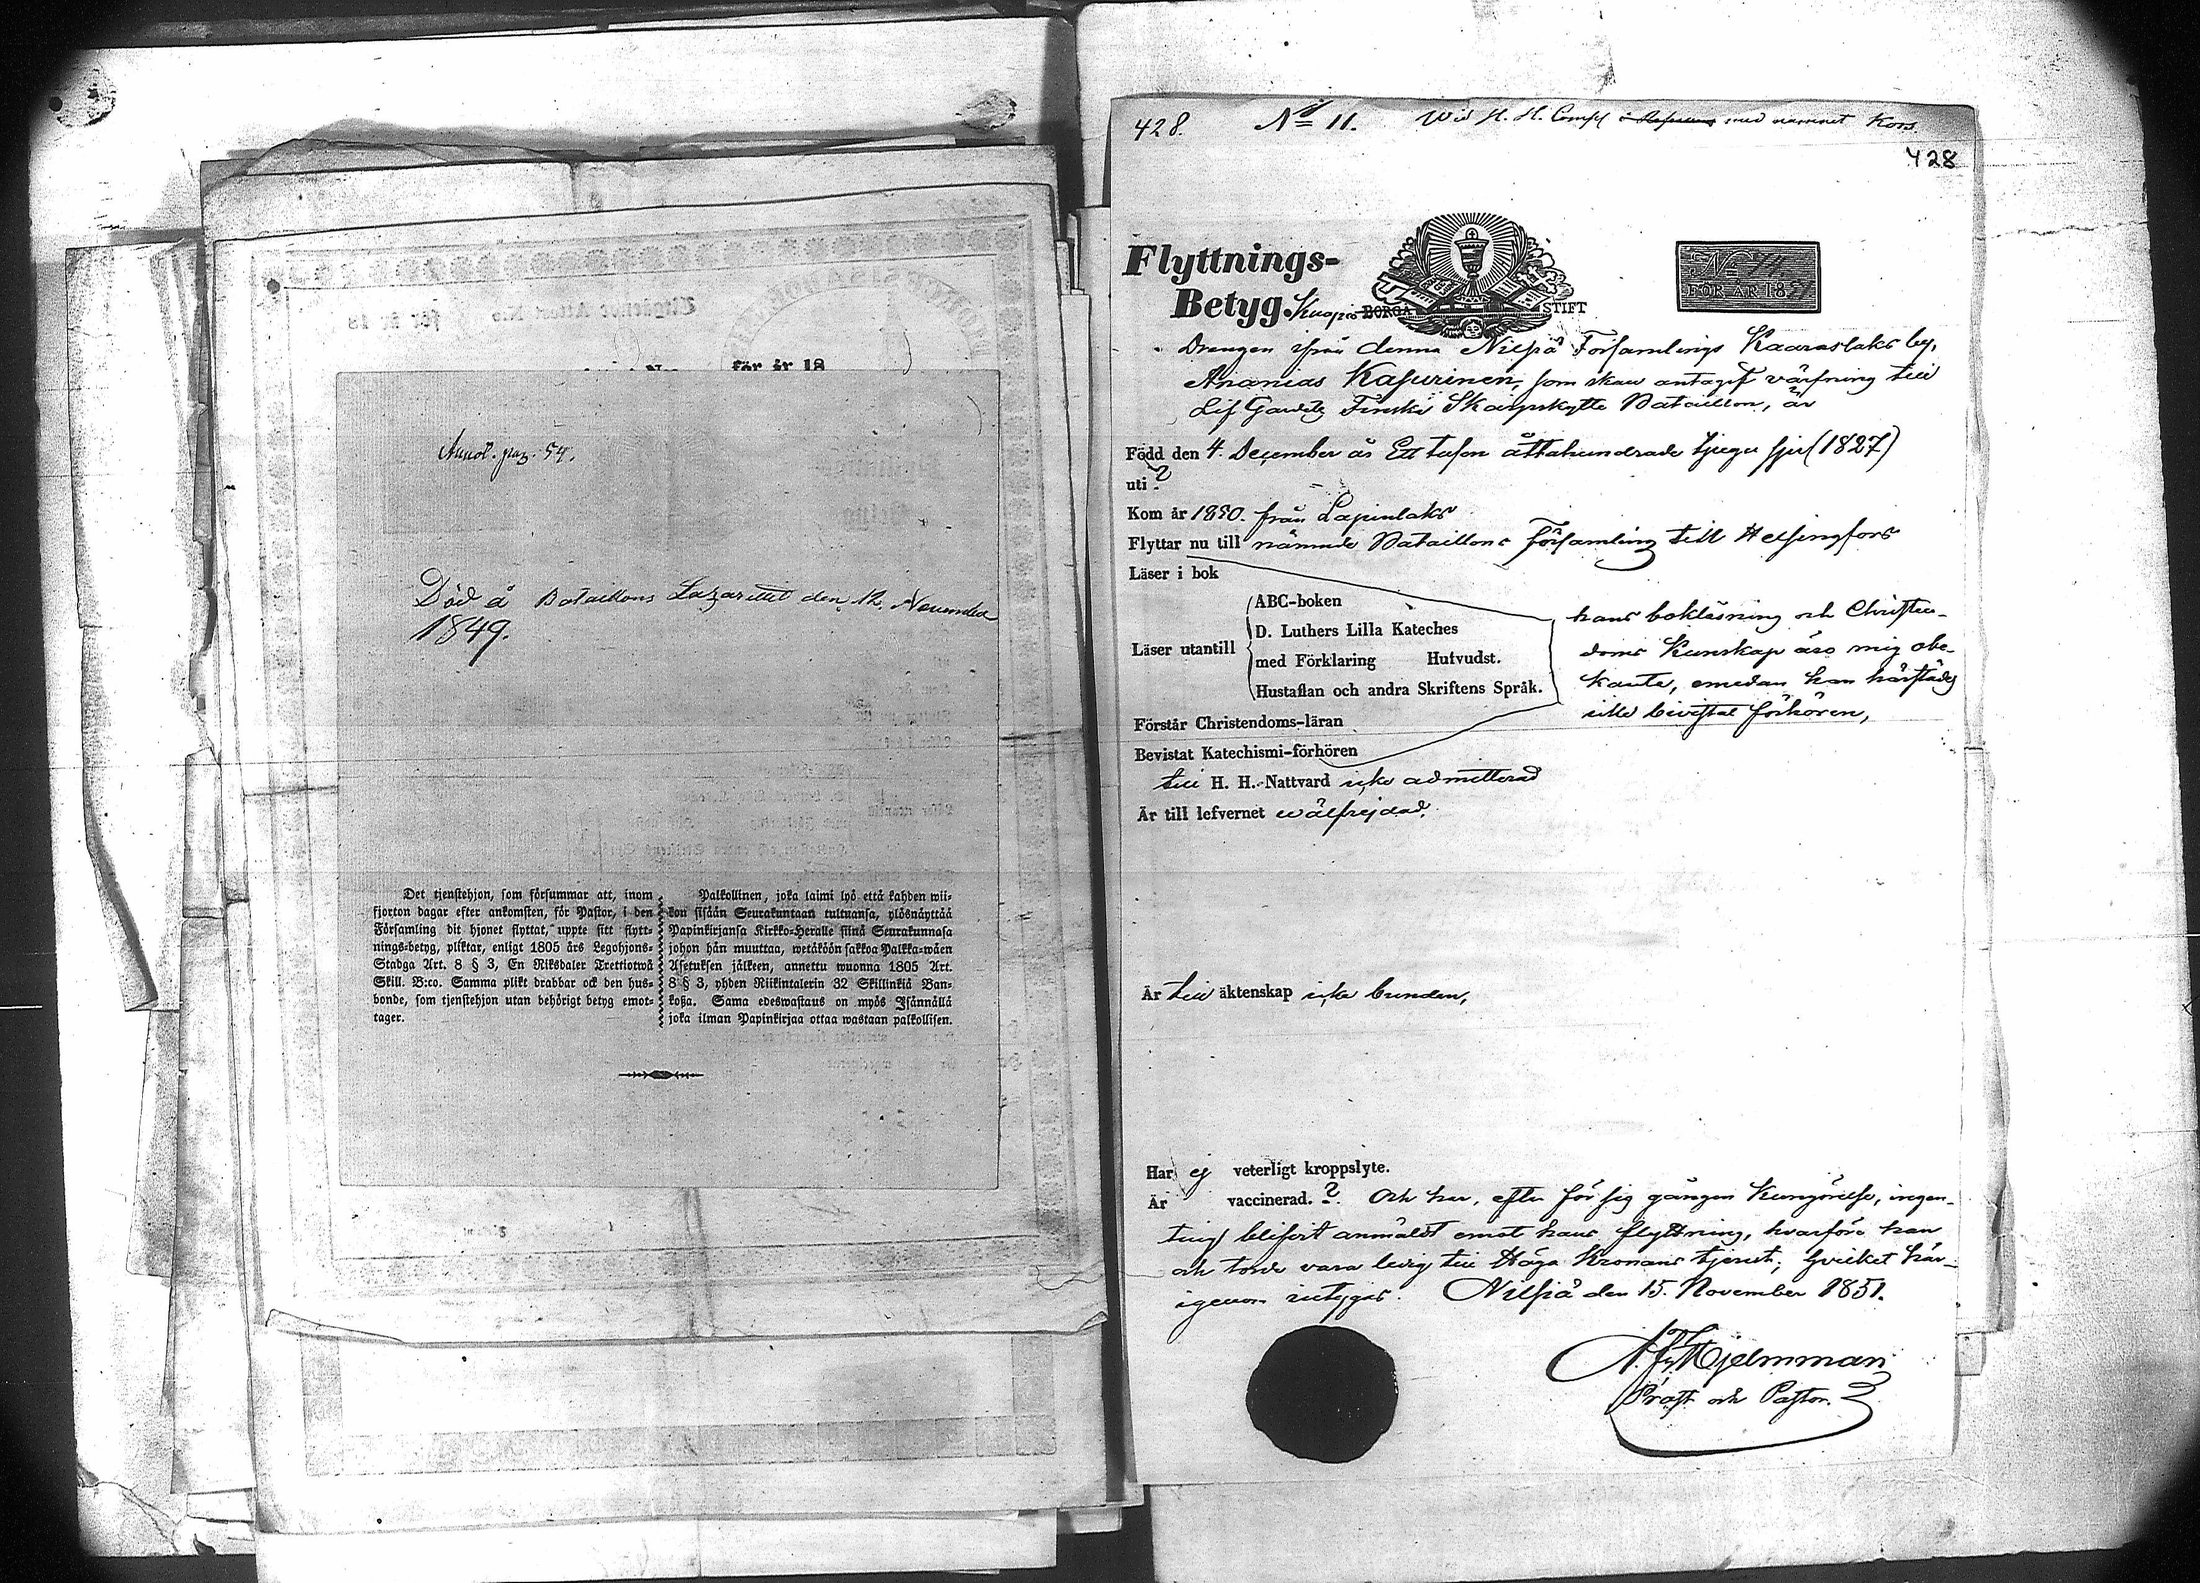 för år 18
Annot. pag. 54.
Död å Bataillons Lazarettet den 12 November
1849.
Det tjenstehjon, som försummar att, inom
fjorton dagar efter ankomsten, för Pastor, i den
Församling dit hjonet flyttat, uppte sitt flytt-
nings-betyg, pliktar, enligt 1805 års Legohjons-
Stadga Art. 8 § 3, En Riksdaler Trettiotwå
Skill. B:co. Samma plikt drabbar ock den hus-
bonde, som tjenstehjon utan behörigt betyg emot-
tager.
Palkollinen, joka laimi lyö että kahden wii-
kon sisään Seurakuntaan tultuansa, ylösnäyttää
Papinkirjansa Kirkko-Heralle siinä Seurakunnasa
johon hän muuttaa, wetäköön sakkoa Palkka-wäen
Asetuksen jälkeen, annettu wuonna 1805 Art.
8 § 3, yhden Riikintalerin 32 Skillinkiä Ban-
koßa. Sama edeswastaus on myös Isännällä
joka ilman Papinkirjaa ottaa wastaan palkollisen.
428. No 11. Wid H. H. Comp med namnet Kors.
428
Flyttnings-
Betyg. Kuopio BORGÅ STIFT
No 11.
FÖR ÅR 1851
Drengen ifrån denna Nilsiä Församlings Kaaraslaks by,
Ananias Kasurinen, som skall antagit värfning till
Lif Gardets Finska Skarpskytte Bataillon, är
Född den 4. December år Ett tusen åttahundrade tjugu sju (1827)
uti ?
Kom år 1850. från Lapinlaks
Flyttar nu till nämnde Bataillons Församling till Helsingfors
Läser i bok
Läser utantill
ABC-boken
D. Luthers Lilla Kateches
med Förklaring Hufvudst.
Hustaflan och andra Skriftens Språk.
hans bokläsning och Christen-
doms Kunskap äro mig obe-
kanta, emedan han härstädes
icke bevistat förhören,
Förstår Christendoms-läran
Bevistat Katechismi-förhören
till H. H. Nattvard icke admitterad
Är till lefvernet wälfrejdad.
Är till äktenskap icke bunden,
Har ej veterligt kroppslyte.
Är vaccinerad. ? Och har, efter för sig gången Kungörelse, ingen-
ting blifvit anmäldt emot hans flyttning, hvarföre han
och torde vara ledig till Höga Kronans tjenst; hvilket här-
igenom intygas. Nilsiä den 15. November 1851.
Hjelmman
Prost och Pastor.